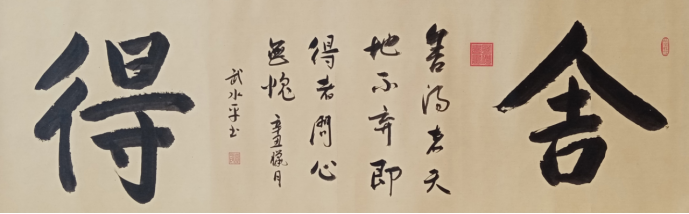 舍
善得者天
地不弃即
得者問心
無愧 辛丑臘月
武水平书
得